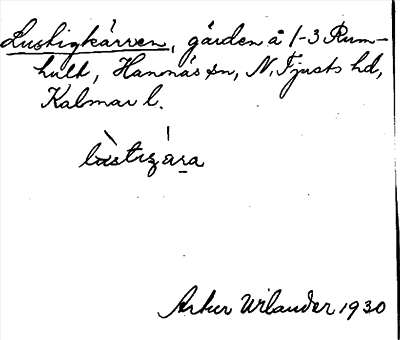 Lustigkärren, gården å 1-3 Rum-
hult, Hannäs sn, N. Tjusts hd,
Kalmar l.
Artur Wilander 1930